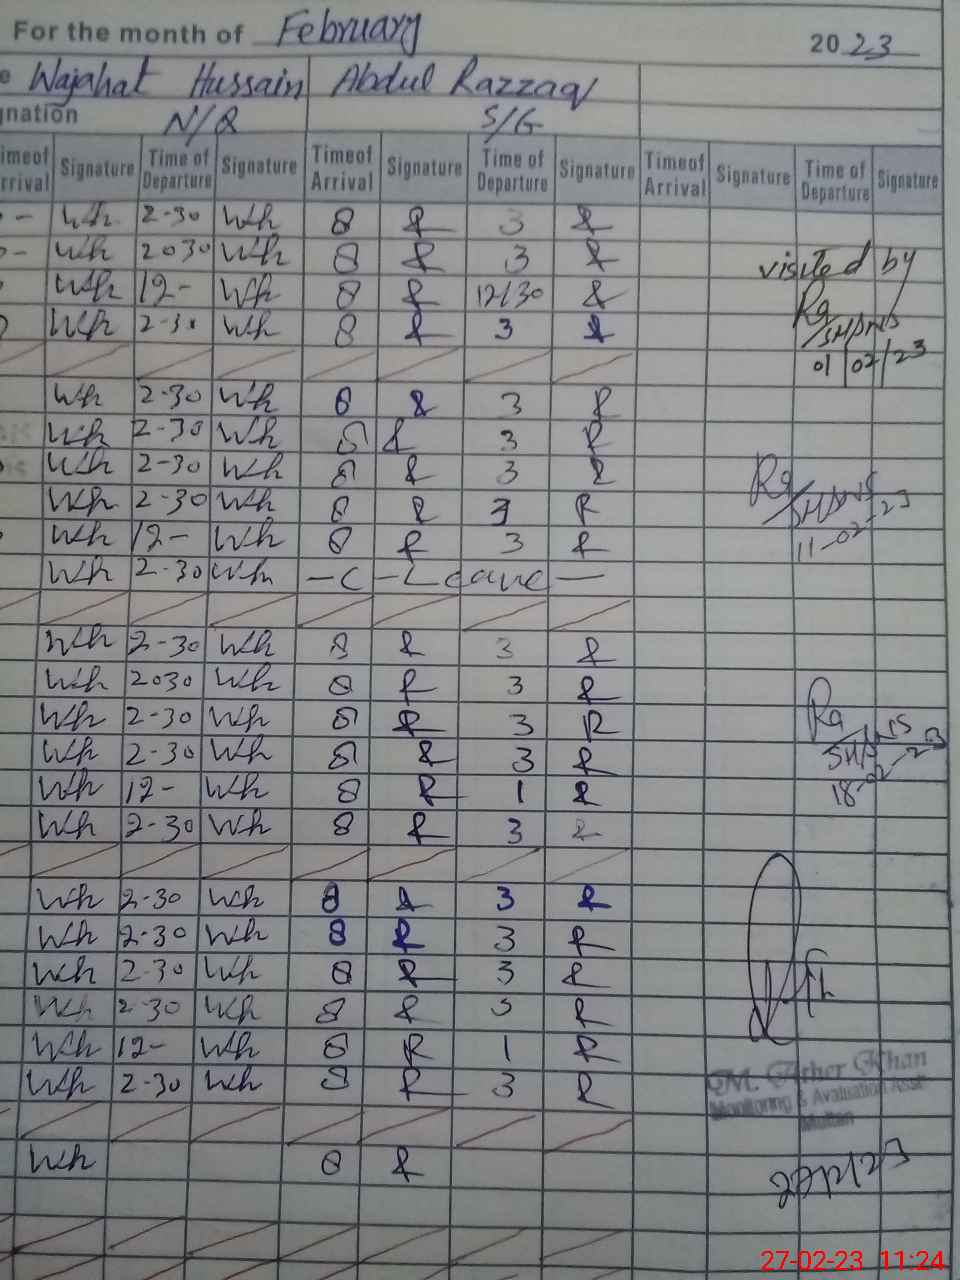 For the month of February 2023
Wajahat Hussain Abdul Razzaq
gnation N/Q S/G
imeof rrival Signature Time of Departure Signature Timeof Arrival Signature Time of Departure Signature Timeof Arrival Signature Time of Departure Signature
- Wh 2-30 Wh 8 R 3 R
- Wh 2030 Wh 8 R 3 R
Wh 12- Wh 8 R 12/30 R
visited by
Wh 2-30 Wh 8 R 3 R
01/02/23
Wh 2-30 Wh 8 R 3 R
Wh 2-30 Wh 8 R 3 R
Wh 2-30 Wh 8 R 3 R
Wh 2-30 Wh 8 R 3 R
Wh 12- Wh 8 R 3 R
11-02-23
Wh 2-30 Wh - C - Leave -
Wh 2-30 Wh 8 R 3 R
Wh 2030 Wh 8 R 3 R
Wh 2-30 Wh 8 R 3 R
Wh 2-30 Wh 8 R 3 R
Wh 12- Wh 8 R 1 R
18-02-23
Wh 2-30 Wh 8 R 3 R
Wh 2-30 Wh 8 R 3 R
Wh 2-30 Wh 8 R 3 R
Wh 2-30 Wh 8 R 3 R
Wh 2-30 Wh 8 R 3 R
Wh 12- Wh 8 R 1 R
Wh 2-30 Wh 8 R 3 R
M. Ather Khan
Monitoring & Avaluation Asst
Multan
Wh 8 R
27/2/23
27-02-23 11:24